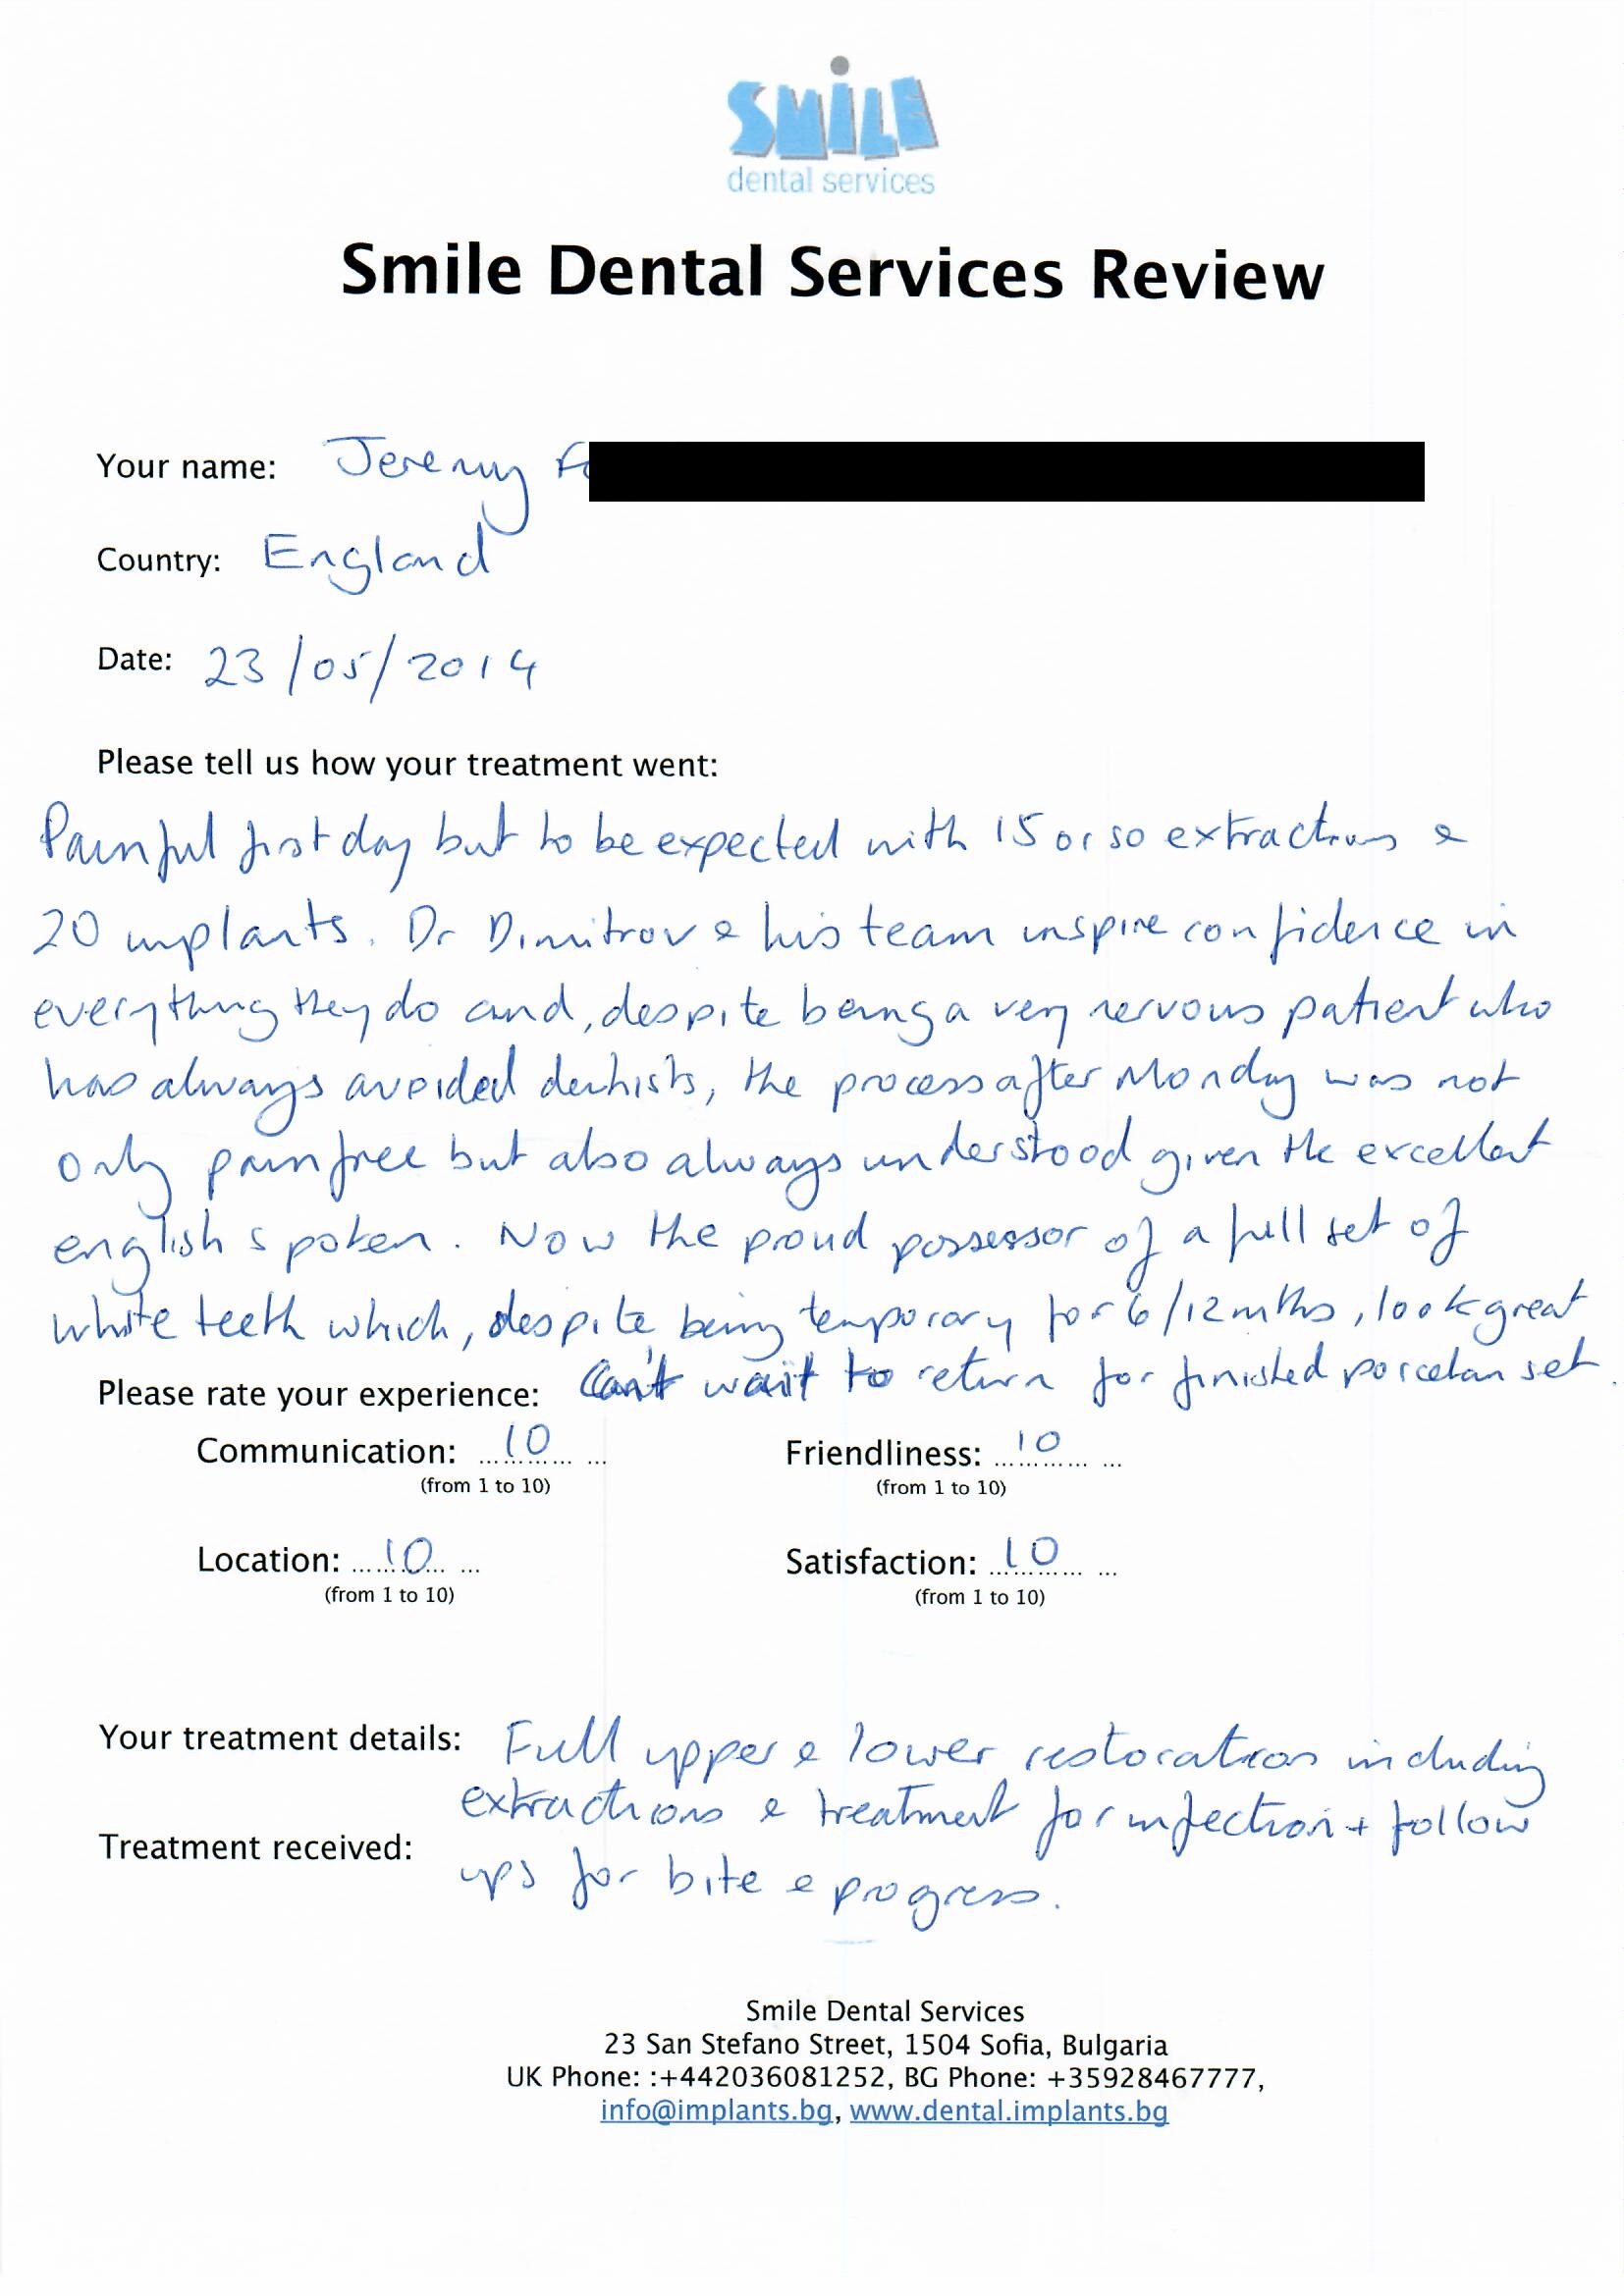 SMILE
dental services
Smile Dental Services Review
Your name: Jeremy
Country: England
Date: 23/05/2014
Please tell us how your treatment went:
Painful first day but to be expected with 15 or so extractions &
20 implants. Dr Dimitrov & his team inspire confidence in
everything they do and, despite being a very nervous patient who
has always avoided dentists, the process after Monday was not
only pain free but also always understood given the excellent
english spoken. Now the proud possessor of a full set of
white teeth which, despite being temporary for 6/12 mths, look great
Can't wait to return for finished porcelan set.
Please rate your experience:
Communication: 10 Friendliness: 10
(from 1 to 10) (from 1 to 10)
Location: 10 Satisfaction: 10
(from 1 to 10) (from 1 to 10)
Your treatment details: Full upper & lower restoration including
extractions & treatment for infection + follow
Treatment received: ups for bite & progress.
Smile Dental Services
23 San Stefano Street, 1504 Sofia, Bulgaria
UK Phone: :+442036081252, BG Phone: +35928467777,
info@implants.bg, www.dental.implants.bg